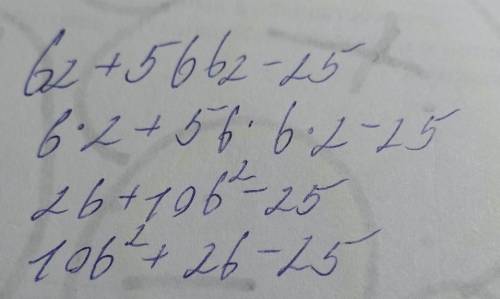 b2 + 5bb2 - 25
b · 2 + 5b · b · 2 - 25
2b + 10b² - 25
10b² + 2b - 25